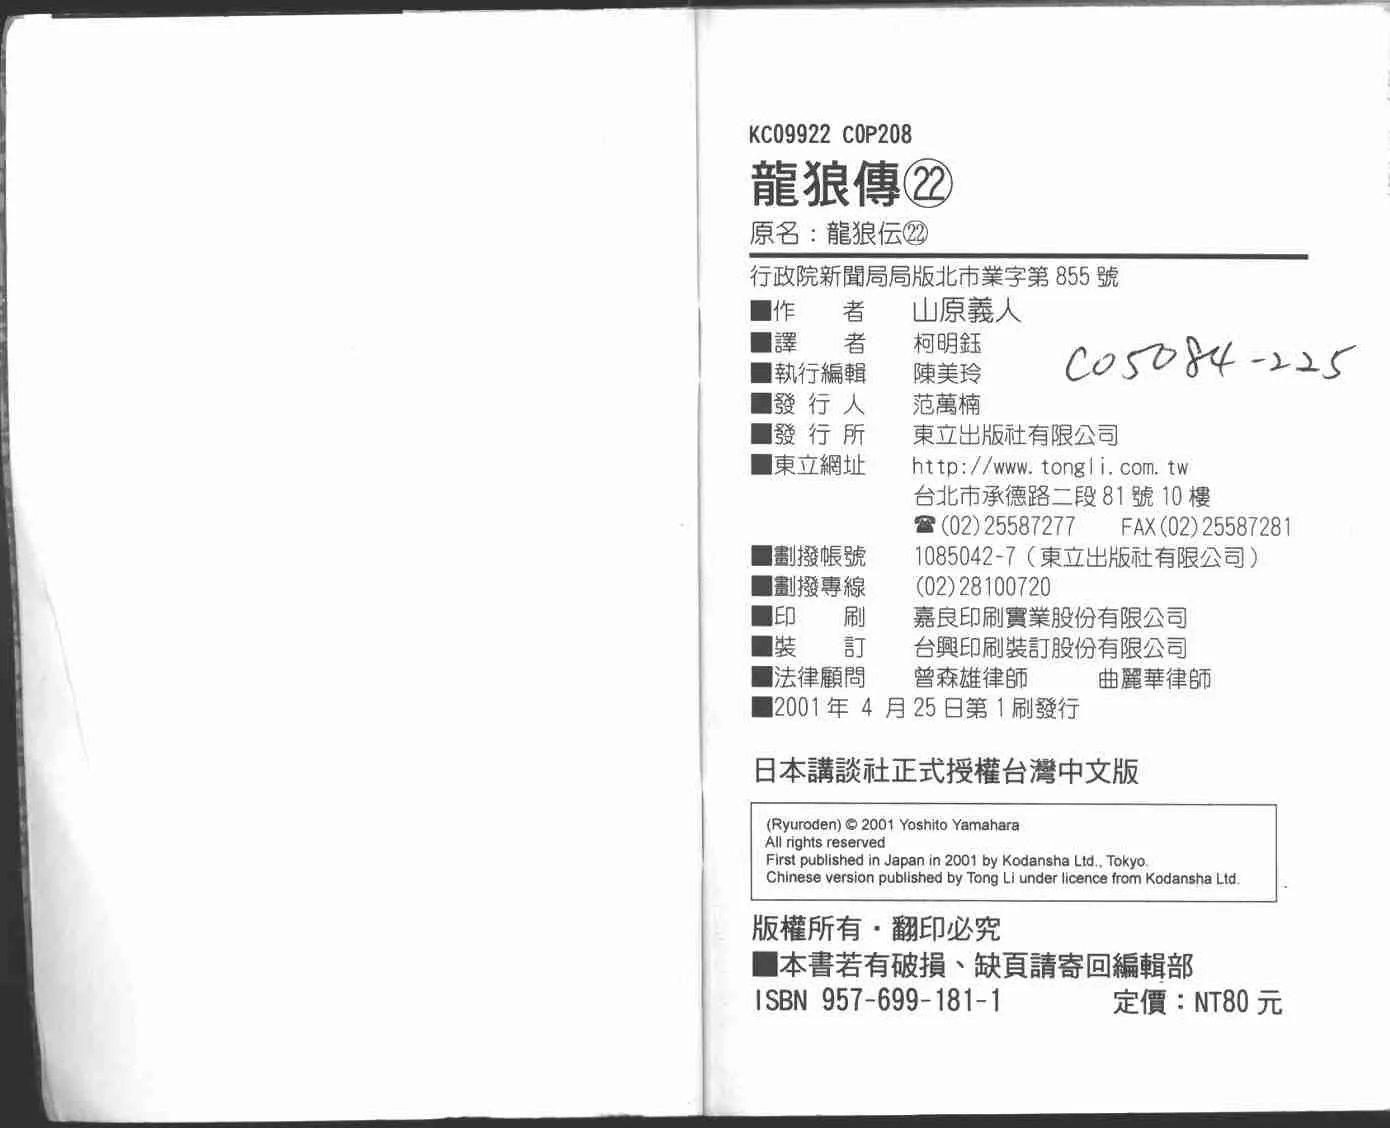 KC09922 COP208
龍狼傳㉒
原名：龍狼伝㉒
行政院新聞局局版北市業字第855號
■作　者　山原義人
■譯　者　柯明鈺
C05084-225
■執行編輯　陳美玲
■發行人　范萬楠
■發行所　東立出版社有限公司
■東立網址　http://www.tongli.com.tw
台北市承德路二段81號10樓
☎(02)25587277　FAX(02)25587281
■劃撥帳號　1085042-7（東立出版社有限公司）
■劃撥專線　(02)28100720
■印　刷　嘉良印刷實業股份有限公司
■裝　訂　台興印刷裝訂股份有限公司
■法律顧問　曾森雄律師　曲麗華律師
■2001年 4 月 25日第1刷發行
日本講談社正式授權台灣中文版
(Ryuroden) © 2001 Yoshito Yamahara
All rights reserved
First published in Japan in 2001 by Kodansha Ltd., Tokyo.
Chinese version published by Tong Li under licence from Kodansha Ltd.
版權所有・翻印必究
■本書若有破損、缺頁請寄回編輯部
ISBN 957-699-181-1　定價：NT80元